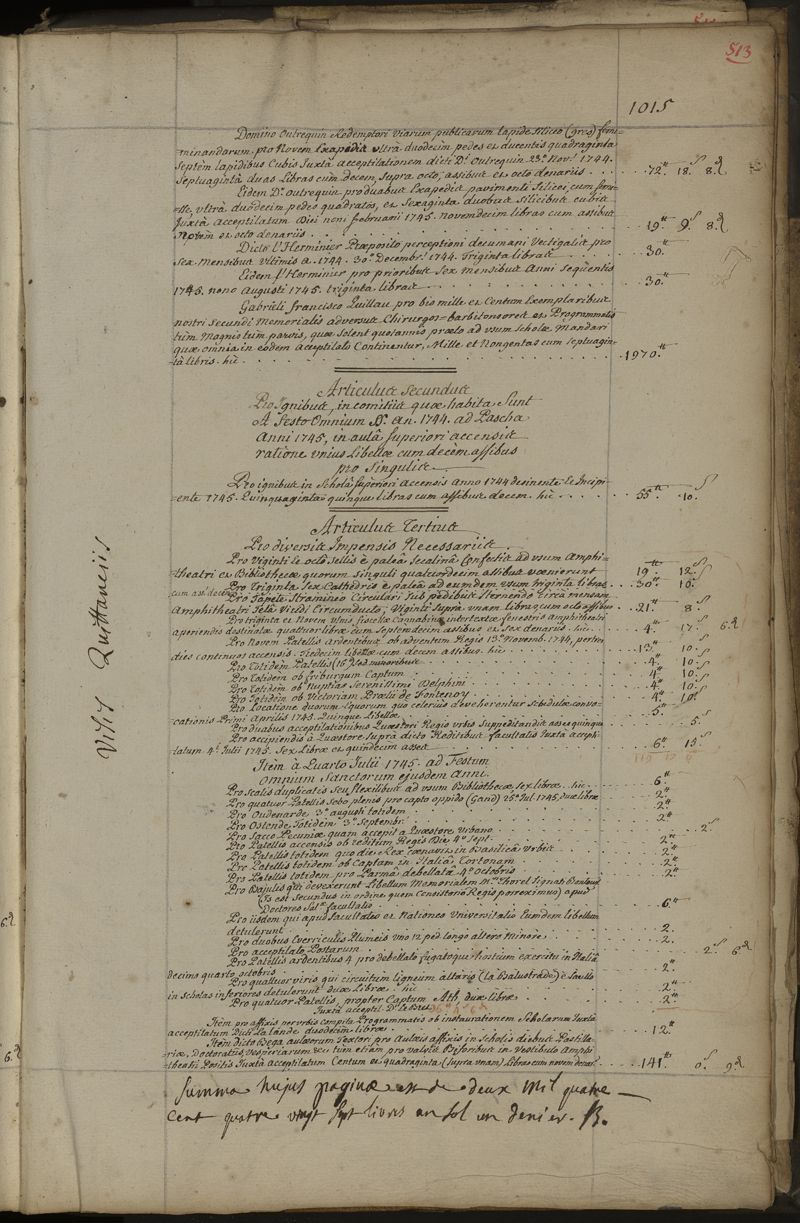 513
1015
Domino Outrequin Redemptori Viarum publicarum lapide siliceo (grez) semi-
minandarum, pro Novem hexapedis ultrà duodecim pedes et ducentis quadraginta
Septem lapidibus Cubis Juxtà acceptilationem dicti D. Outrequin 23. Nov. 1744.
Septuagintà duas Libras cum decem, supra octo, assibus et octo denariis . . . 72tt 18s 8d
Eidem D. Outrequin pro duabus hexapedis pavimenti silicei, cum
ultrà duodecim pedes quadratos, et Sexaginta duobus silicibus cubis
Juxtà acceptilatum Diei noni februarii 1745. novemdecim libras cum assibus
Novem et octo denariis . . . 19tt 9s 8d
Dicto l'Herminier Præposito perceptioni decumani Vectigalis pro
Sex mensibus Ultimis a. 1744. 30. Decembr. 1744. Triginta libras . . . 30tt
Eidem l'Herminier pro prioribus Sex mensibus Anni sequentis
1745. nono Augusti 1745. triginta libras . . . 30tt
Gabrieli francisco Quillau pro bis mille et Centum Exemplaribus
nostri Secundi Memorialis adversus Chirurgos-barbitonsores et Programmatis
tùm Magnis tùm parvis, quæ solent quotannis prælo ad usum Scholæ Mandari
quæ omnia in eodem acceptilato Continentur, Mille et Nongentas cum septuagin-
tà libris. hic . . . 1970tt
Articulus Secundus
Pro Ignibus, in comitiis quæ habita sunt
A Festo Omnium SS. an. 1744. ad Pascha
Anni 1745, in aulâ superiori accensis
ratione unius Libellæ cum decem assibus
pro singulis.
Pro ignibus in Scholâ superiori accensis anno 1744 desinente & Incipi-
ente 1745. Quinquaginta-quinque libras cum assibus decem. hic . . . 55tt 10s
Articulus Tertius
Pro diversis Impensis Necessariis.
Pro Viginti et octo sellis è paleâ Secalinâ Confectis ad usum Amphi-
theatri et Bibliothecæ quorum singuli quatuordecim assibus vænierunt 19. 12s
Pro Triginta sex Cathedris è paleâ ad eundem usum triginta libras
cum ass. decem . . . 30tt 10s
Pro Tapete Stramineo Circulari sub pedibus Sternendo circà mensam
Amphitheatri Telâ Viridi Circumducto, Viginti supra unam libras, cum octo assibus . 21tt 8s
Pro triginta et Novem Ulnis fiscellæ Cannabinæ intertextæ fenestris Amphitheatri
aperiendis destinatæ quatuor libræ cum Septemdecim assibus et sex denariis. hic . . 4tt 17s 6d
Pro Novem Patellis ardentibus ob adventum Regis 13. Novemb. 1744, per tres
dies continuos accensis. Tredecim libellæ cum decem assibus. hic . . . 13tt 10s
Pro Totidem Patellis (15s) sed minoribus . . . 4tt 10s
Pro totidem ob friburgum Captum . . . 4tt 10s
Pro totidem ob Nuptias Serenissimi Delphini . . . 4tt 10s
Pro totidem ob Victoriam Prælii de Fontenoy . . . 4tt 10s
Pro Locatione duorum equorum quo celeriùs deveherentur Schedulæ convo-
cationis Primi Aprilis 1745. Quinque Libellæ . . . 5tt
Pro duabus acceptilationibus Quæstori Regio urbis Suppeditandis asses quinque . . 5s
Pro accipiendis à Quæstore Suprà dicto Reditibus facultatis Juxtà accepti-
latum 4. Julii 1745. Sex Libræ et quindecim asses . . . 6tt 15s
Item à Quarto Julii 1745. ad Festum
Omnium Sanctorum ejusdem Anni.
Pro Scalis duplicatis seu flexilibus ad usum Bibliothecæ, sex libræ. hic . . 6tt
Pro quatuor Patellis Sebo plenis pro capto oppido (Gand) 25. Jul. 1745, duæ libræ . . 2tt
Pro Oudenarde 3. augusti totidem . . . 2tt
Pro Ostende Totidem 3. Septembr. . . . 2tt
Pro Sacco Pecuniæ quam accepit a Quæstore Urbano . . . 2s
Pro Patellis accensis ob reditum Regis Die 4. Sept. . . . 2tt
Pro Patellis totidem quo die Rex Cænavit in Basilicâ Urbis . . . 2tt
Pro Patellis totidem ob Captam in Italiâ Cortonam . . . 2tt
Pro Patellis totidem pro Parmâ debellatâ 4. Octobris . . . 2tt
Pro Bajulis qui devexerunt Libellum Memorialem M. Thorel signatum
(Is est Secundus in ordine, quem Consistorio Regis porreximus) apud
Doctores Sal. facultatis . . . 6tt
Pro iisdem qui apud facultates et Nationes Universitatis Eundem libellum
detulerunt . . . 2.
Pro duobus Everriculis Plumeis uno 12 ped. longo altero Minore . . . 2.
Pro acceptilato Postarum . . . 2s 6d
Pro Patellis ardentibus 4 pro debellato fugatoque hostium exercitu in Italiâ
decimo quarto octobris . . . 2tt
Pro quattuor viris qui circuitum ligneum altaris (la Balustrade) è Sacello
in scholas inferiores detulerunt duæ Libræ. hic . . . 2tt
Pro quatuor Patellis, propter Captum Ath, duæ libræ . . . 2tt
Juxtà acceptil. D.
Item pro affixis per urbis compita Programmatis ob instaurationem Scholarum Juxtà
acceptilatum Dicti La Lande duodecim libræ . . . 12tt
Item dicto Bega aulæorum Textori pro Aulæis affixis in Scholis diebus Pastilla-
riæ, Doctoratus Vesperiarum &c tùm etiam pro valvis Bisoribus in Vestibulo Amphi-
theatri Positis Juxtà acceptilatum Centum et quadraginta (supra unam) Libras cum novem denar. . 141tt 0s 9d
Summa hujus paginæ est de deux mil quatre
cent quatre vingt sept livres un sol un denier. B.
6d
6d